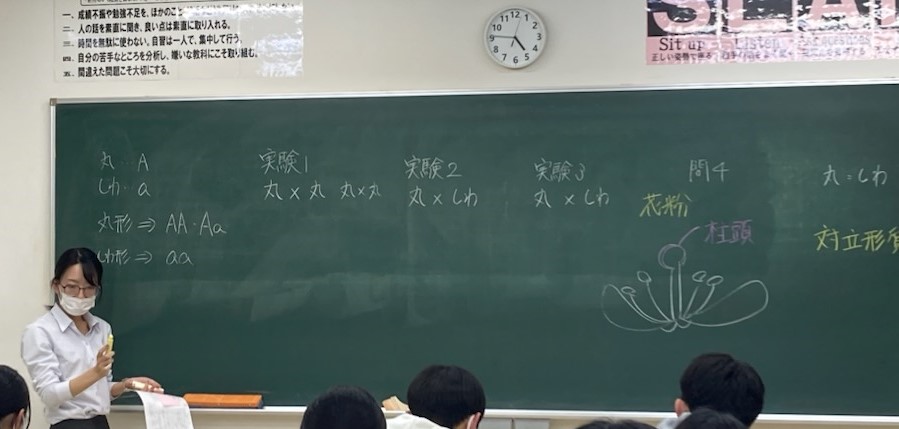 一、成績不振や勉強不足を、ほかのこと
二、人の話を素直に聞き、良い点は素直に取り入れる。
三、時間を無駄に使わない。自習は一人で、集中して行う。
四、自分の苦手なところを分析し、嫌いな教科にこそ取り組む。
五、間違えた問題こそ大切にする。
12 1 2 3 4 5 6 7 8 9 10 11
SLA
Sit up
Listen
丸…A
しわ…a
丸形⇒AA・Aa
しわ形⇒aa
実験1
丸×丸 丸×丸
実験2
丸×しわ
実験3
丸×しわ
問4
花粉
柱頭
丸:しわ
対立形質